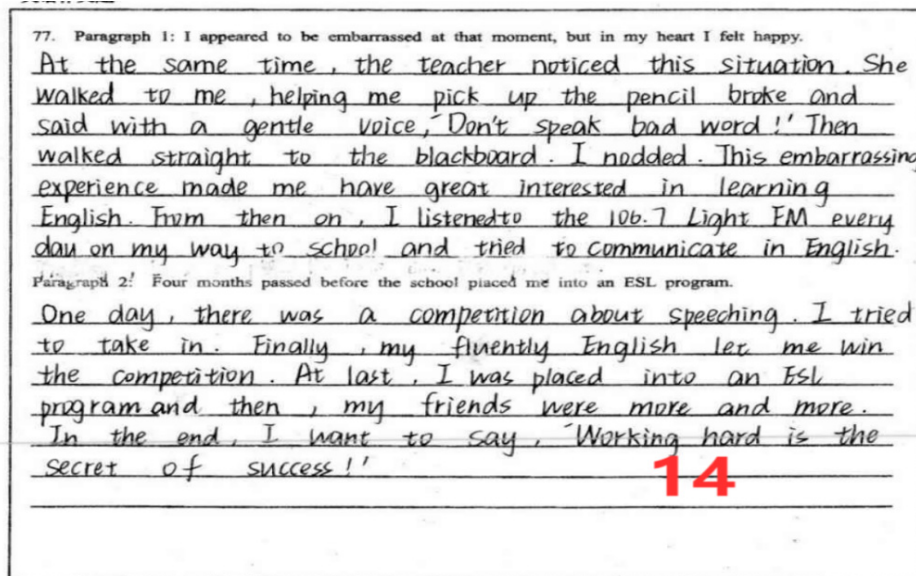 77. Paragraph 1: I appeared to be embarrassed at that moment, but in my heart I felt happy.
At the same time, the teacher noticed this situation. She
walked to me, helping me pick up the pencil broke and
said with a gentle voice, "Don't speak bad word!" Then
walked straight to the blackboard. I nodded. This embarrassing
experience made me have great interested in learning
English. From then on, I listened to the 106.7 Light FM every
day on my way to school and tried to communicate in English.
Paragraph 2: Four months passed before the school placed me into an ESL program.
One day, there was a competition about speeching. I tried
to take in. Finally, my fluently English let me win
the competition. At last, I was placed into an ESL
program and then, my friends were more and more.
In the end, I want to say, "Working hard is the
secret of success!"
14